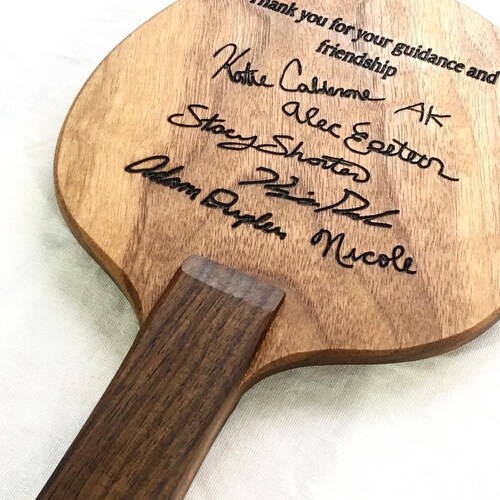 Thank you for your guidance and
friendship
Katie Calderone AK
Alec Epstein
Stacy Shorter
Adam Dugden Nicole